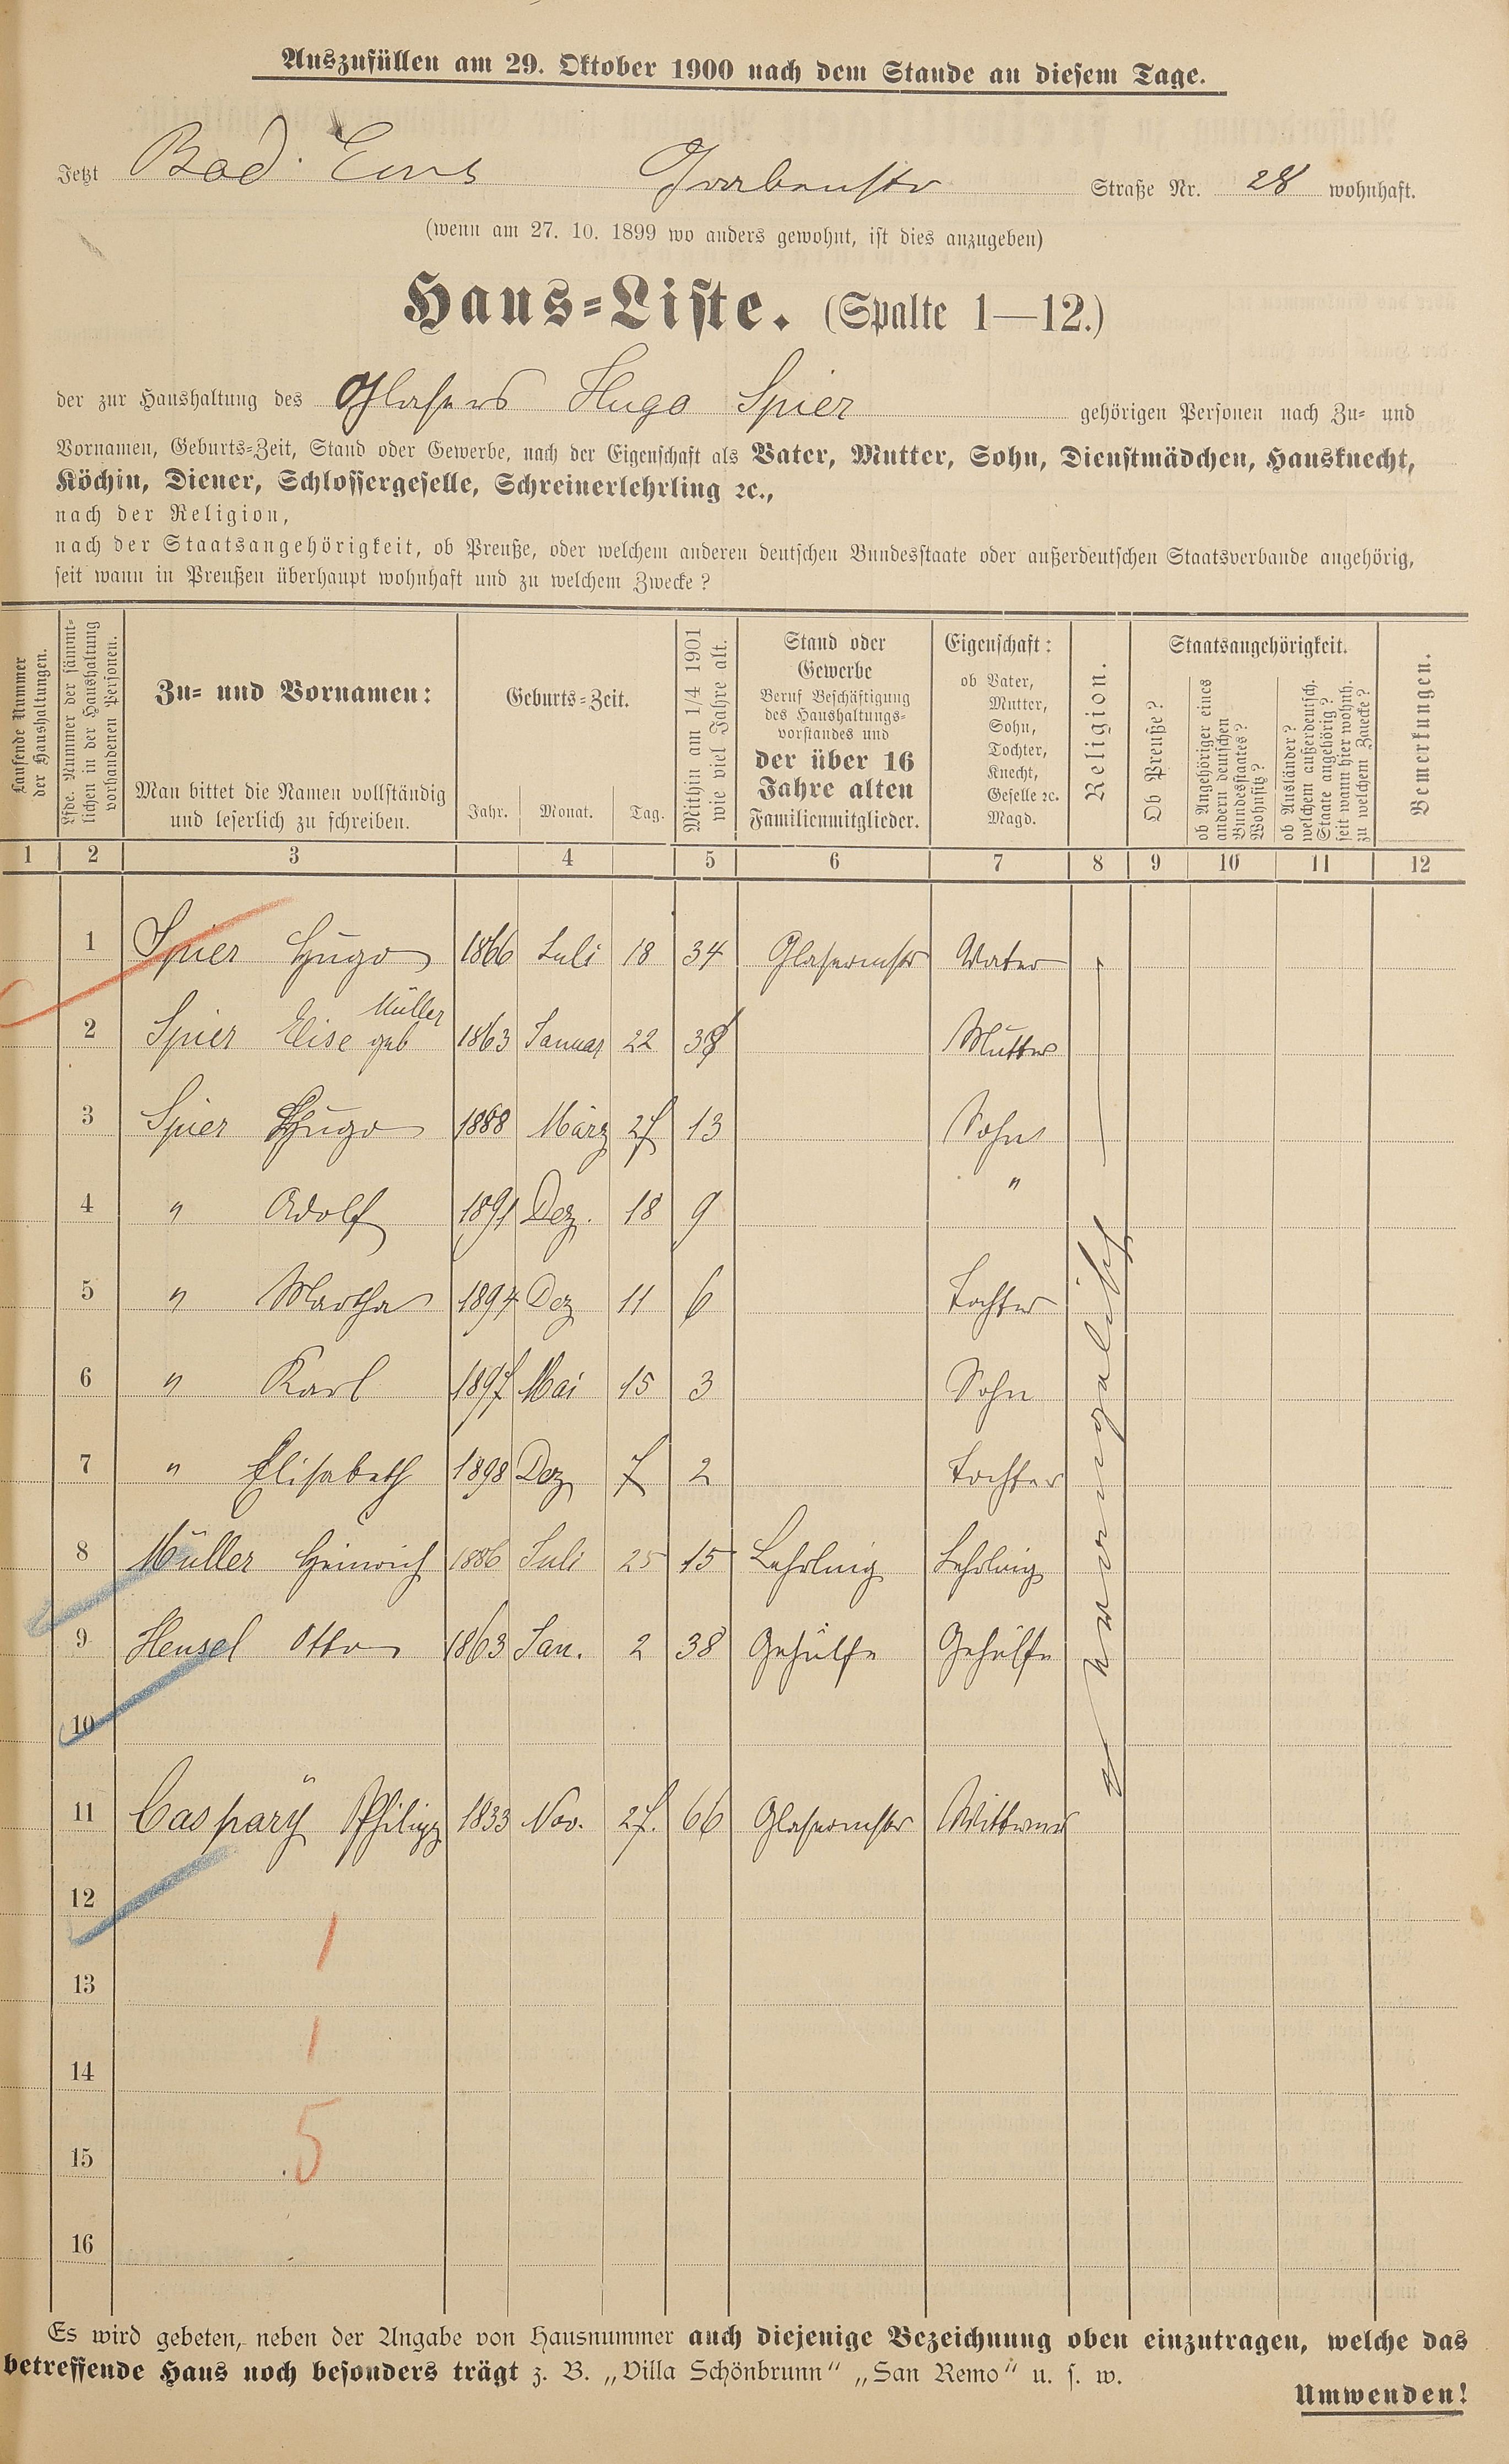 Auszufüllen am 29. Oktober 1900 nach dem Stande an diesem Tage.
Jetzt Bad Ems Grabenstr Straße Nr. 28 wohnhaft.
(wenn am 27. 10. 1899 wo anders gewohnt, ist dies anzugeben)
Haus-Liste. (Spalte 1—12.)
der zur Haushaltung des Glasers Hugo Spier gehörigen Personen nach Zu- und
Vornamen, Geburts-Zeit, Stand oder Gewerbe, nach der Eigenschaft als Vater, Mutter, Sohn, Dienstmädchen, Hausknecht,
Köchin, Diener, Schlossergeselle, Schreinerlehrling ꝛc.,
nach der Religion,
nach der Staatsangehörigkeit, ob Preuße, oder welchem anderen deutschen Bundesstaate oder außerdeutschen Staatsverbande angehörig,
seit wann in Preußen überhaupt wohnhaft und zu welchem Zwecke?
Laufende Nummer
der Haushaltungen.
Lfde. Nummer der sämmt-
lichen in der Haushaltung
vorhandenen Personen.
Zu- und Vornamen:
Man bittet die Namen vollständig
und leserlich zu schreiben.
Geburts-Zeit.
Jahr. Monat. Tag.
Mithin am 1/4 1901
wie viel Jahre alt.
Stand oder
Gewerbe
Beruf Beschäftigung
des Haushaltungs-
vorstandes und
der über 16
Jahre alten
Familienmitglieder.
Eigenschaft:
ob Vater,
Mutter,
Sohn,
Tochter,
Knecht,
Geselle ꝛc.
Magd.
Religion.
Staatsangehörigkeit.
Ob Preuße?
ob Angehöriger eines
andern deutschen
Bundesstaates?
Wohnsitz?
ob Ausländer?
welchem außerdeutsch.
Staate angehörig?
seit wann hier wohnh.
zu welchem Zwecke?
Bemerkungen.
1 2 3 4 5 6 7 8 9 10 11 12
1 Spier Hugo 1866 Juli 18 34 Glasermstr Vater
Müller
2 Spier Elise geb 1863 Januar 22 38 Mutter
3 Spier Hugo 1888 März 27 13 Sohn
4 " Adolf 1891 Dez. 18 9 "
5 " Martha 1894 Dez 11 6 Tochter
6 " Karl 1897 Mai 15 3 Sohn
7 " Elisabeth 1898 Dez 7 2 Tochter
8 Müller Heinrich 1886 Juli 25 15 Lehrling Lehrling
9 Hensel Otto 1863 Jan. 2 38 Gehülfe Gehülfe
evangelisch
10
11 Caspary Philipp 1833 Nov. 27. 66 Glasermstr Wittwer
12
1
13
1
14
5
15
16
Es wird gebeten, neben der Angabe von Hausnummer auch diejenige Bezeichnung oben einzutragen, welche das
betreffende Haus noch besonders trägt z. B. „Villa Schönbrunn“ „San Remo“ u. s. w.
Umwenden!